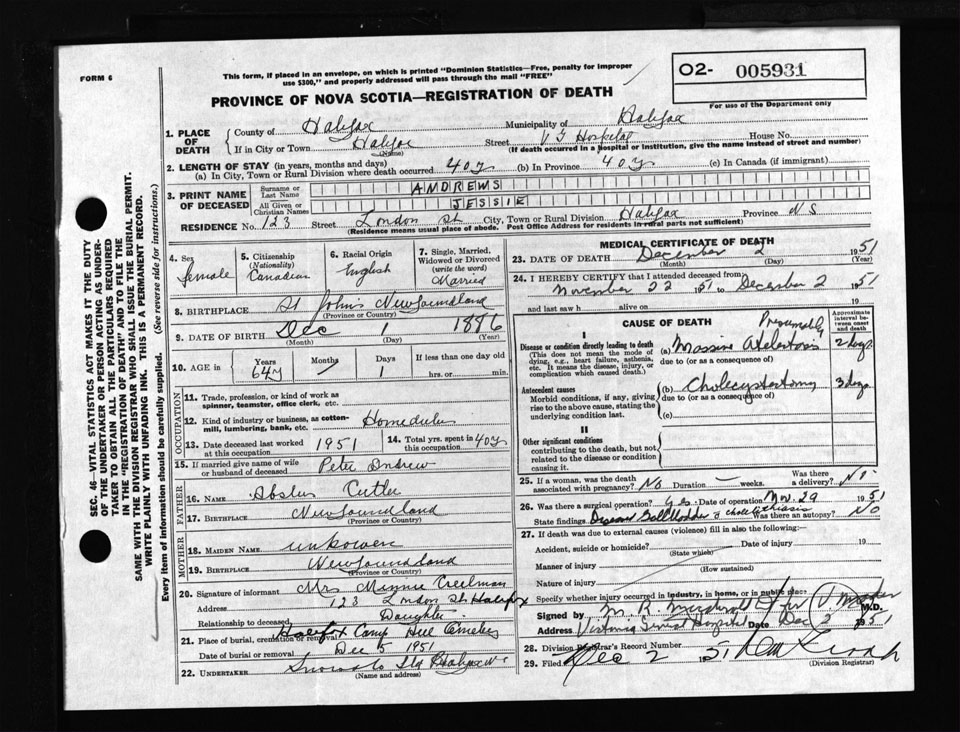 FORM 6
This form, if placed in an envelope, on which is printed "Dominion Statistics—Free, penalty for improper
use $300," and properly addressed will pass through the mail "FREE"
O2- 005931
For use of the Department only
PROVINCE OF NOVA SCOTIA—REGISTRATION OF DEATH
1. PLACE OF DEATH
County of Halifax Municipality of Halifax
If in City or Town Halifax Street V G Hospital House No.
(Name) (If death occurred in a hospital or institution, give the name instead of street and number)
2. LENGTH OF STAY (in years, months and days)
(a) In City, Town or Rural Division where death occurred 40 y (b) In Province 40 y (c) In Canada (if immigrant)
3. PRINT NAME OF DECEASED
Surname or Last Name ANDREWS
All Given or Christian Names JESSIE
RESIDENCE No. 123 Street London St City, Town or Rural Division Halifax Province N S
(Residence means usual place of abode. Post Office Address for residents in rural parts not sufficient)
4. Sex female
5. Citizenship (Nationality) Canadian
6. Racial Origin English
7. Single, Married, Widowed or Divorced (write the word) Married
8. BIRTHPLACE St Johns Newfoundland
(Province or Country)
9. DATE OF BIRTH Dec 1 1886
(Month) (Day) (Year)
10. AGE in Years 64y Months Days 1 If less than one day old
hrs. or min.
OCCUPATION
11. Trade, profession, or kind of work as
spinner, teamster, office clerk, etc.
12. Kind of industry or business, as cotton-
mill, lumbering, bank, etc. Homeduties
13. Date deceased last worked
at this occupation 1951
14. Total yrs. spent in
this occupation 40y
15. If married give name of wife
or husband of deceased Peter Andrew
FATHER
16. NAME Cutler
17. BIRTHPLACE Newfoundland
(Province or Country)
MOTHER
18. MAIDEN NAME unkowen
19. BIRTHPLACE Newfoundland
(Province or Country)
20. Signature of informant Mrs Minnie Creelman
Address 123 London St. Halifax
Relationship to deceased Daughter
21. Place of burial, cremation or removal Halifax Camp Hill Cemetery
Date of burial or removal Dec 5 1951
22. UNDERTAKER Snows Ltd Halifax
(Name and address)
MEDICAL CERTIFICATE OF DEATH
23. DATE OF DEATH December 2 1951
(Month) (Day) (Year)
24. I HEREBY CERTIFY that I attended deceased from
November 22 1951 to December 2 1951
and last saw h alive on 19
I
CAUSE OF DEATH
Approximate interval between onset and death
Disease or condition directly leading to death
(This does not mean the mode of dying, e.g., heart failure, asthenia, etc. It means the disease, injury, or complication which caused death.)
Presumably
(a) Massive Atelectasis 2 days
due to (or as a consequence of)
Antecedent causes
Morbid conditions, if any, giving rise to the above cause, stating the underlying condition last.
(b) Cholecystectomy 3 days
due to (or as a consequence of)
(c)
II
Other significant conditions
contributing to the death, but not related to the disease or condition causing it.
25. If a woman, was the death
associated with pregnancy? No Duration weeks. Was there a delivery? No
26. Was there a surgical operation? yes. Date of operation Nov. 29 1951
State findings Diseased Gall Bladder & cholelithiasis Was there an autopsy? No
27. If death was due to external causes (violence) fill in also the following:
Accident, suicide or homicide? Date of injury 19
(State which)
Manner of injury
(How sustained)
Nature of injury
Specify whether injury occurred in industry, in home, or in public place
Signed by M. R. for M.D.
Address Victoria General Hospital Date Dec 2 1951
28. Division Registrar's Record Number
29. Filed Dec 2 1951
(Division Registrar)
SEC. 46—VITAL STATISTICS ACT MAKES IT THE DUTY
OF THE UNDERTAKER OR PERSON ACTING AS UNDER-
TAKER TO OBTAIN ALL THE PARTICULARS REQUIRED
IN THE "REGISTRATION OF DEATH" AND TO FILE THE
SAME WITH THE DIVISION REGISTRAR WHO SHALL ISSUE THE BURIAL PERMIT.
WRITE PLAINLY WITH UNFADING INK. THIS IS A PERMANENT RECORD.
Every item of information should be carefully supplied. (See reverse side for instructions.)